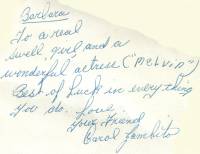 Barbara
To a real
swell girl and a
wonderful actress ("Melvin")
Best of luck in everything
you do. Love
Your Friend
Carol Lambito